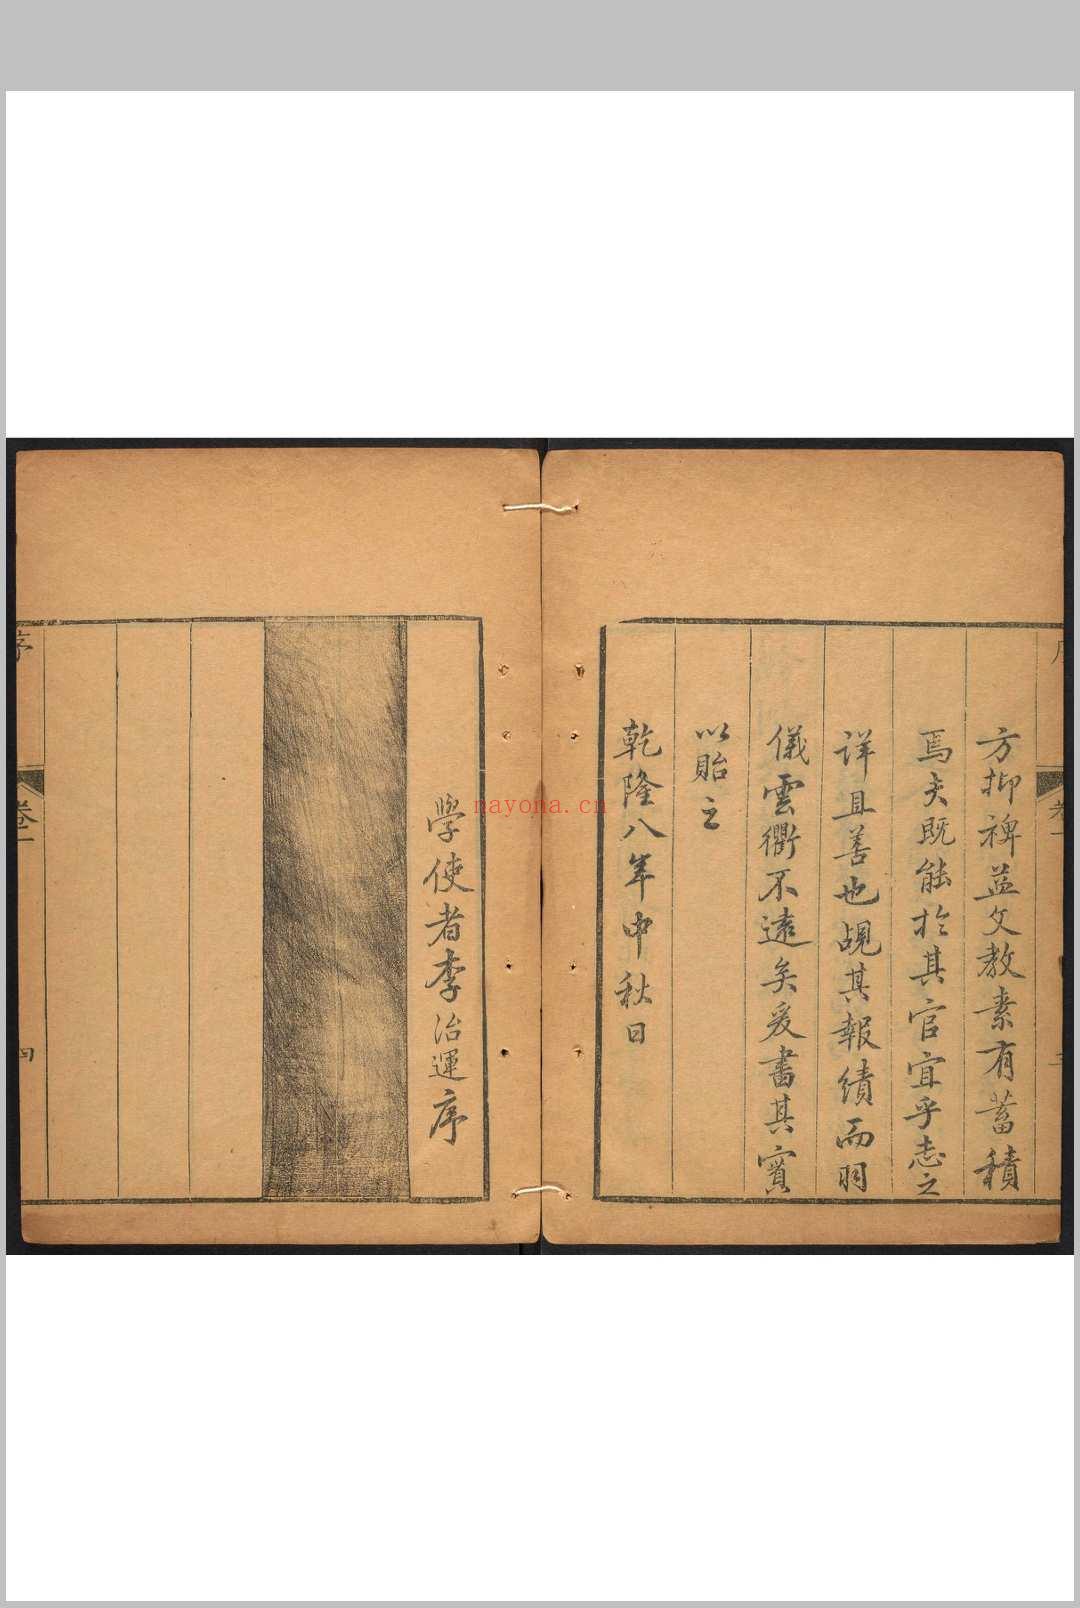 方抑裨益文教素有蓄積
焉夫既能於其官宜乎志之
詳且善也覘其報績而羽
儀雲衢不遠矣爰書其實
以貽之
乾隆八年中秋日
學使者李治運序
序
卷一
四
nayona.cn